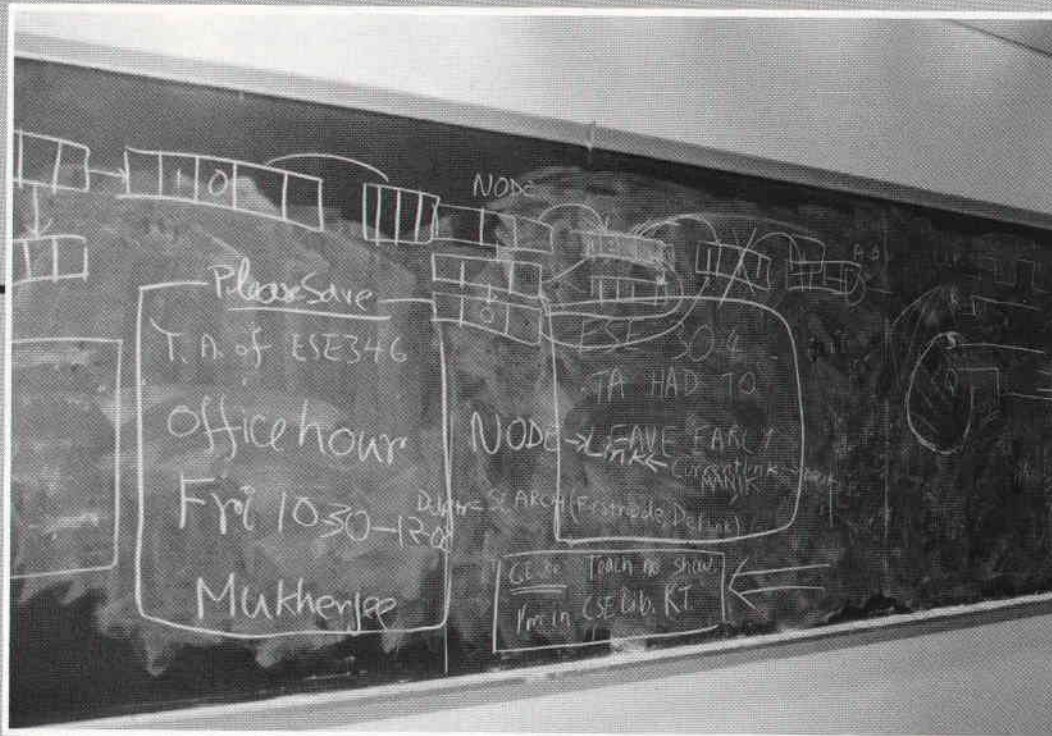 1 0
NODE
Please Save
T.A. of ESE346
office hour
Fri 1030-12:0
Mukherjee
0
ESE 304
TA HAD TO
LEAVE EARLY
MANJK
NODE → Link ← Currentlink →
= SEARCH (Firstnode, Delink)
Teach no show.
I'm in CSE Lib. RT.